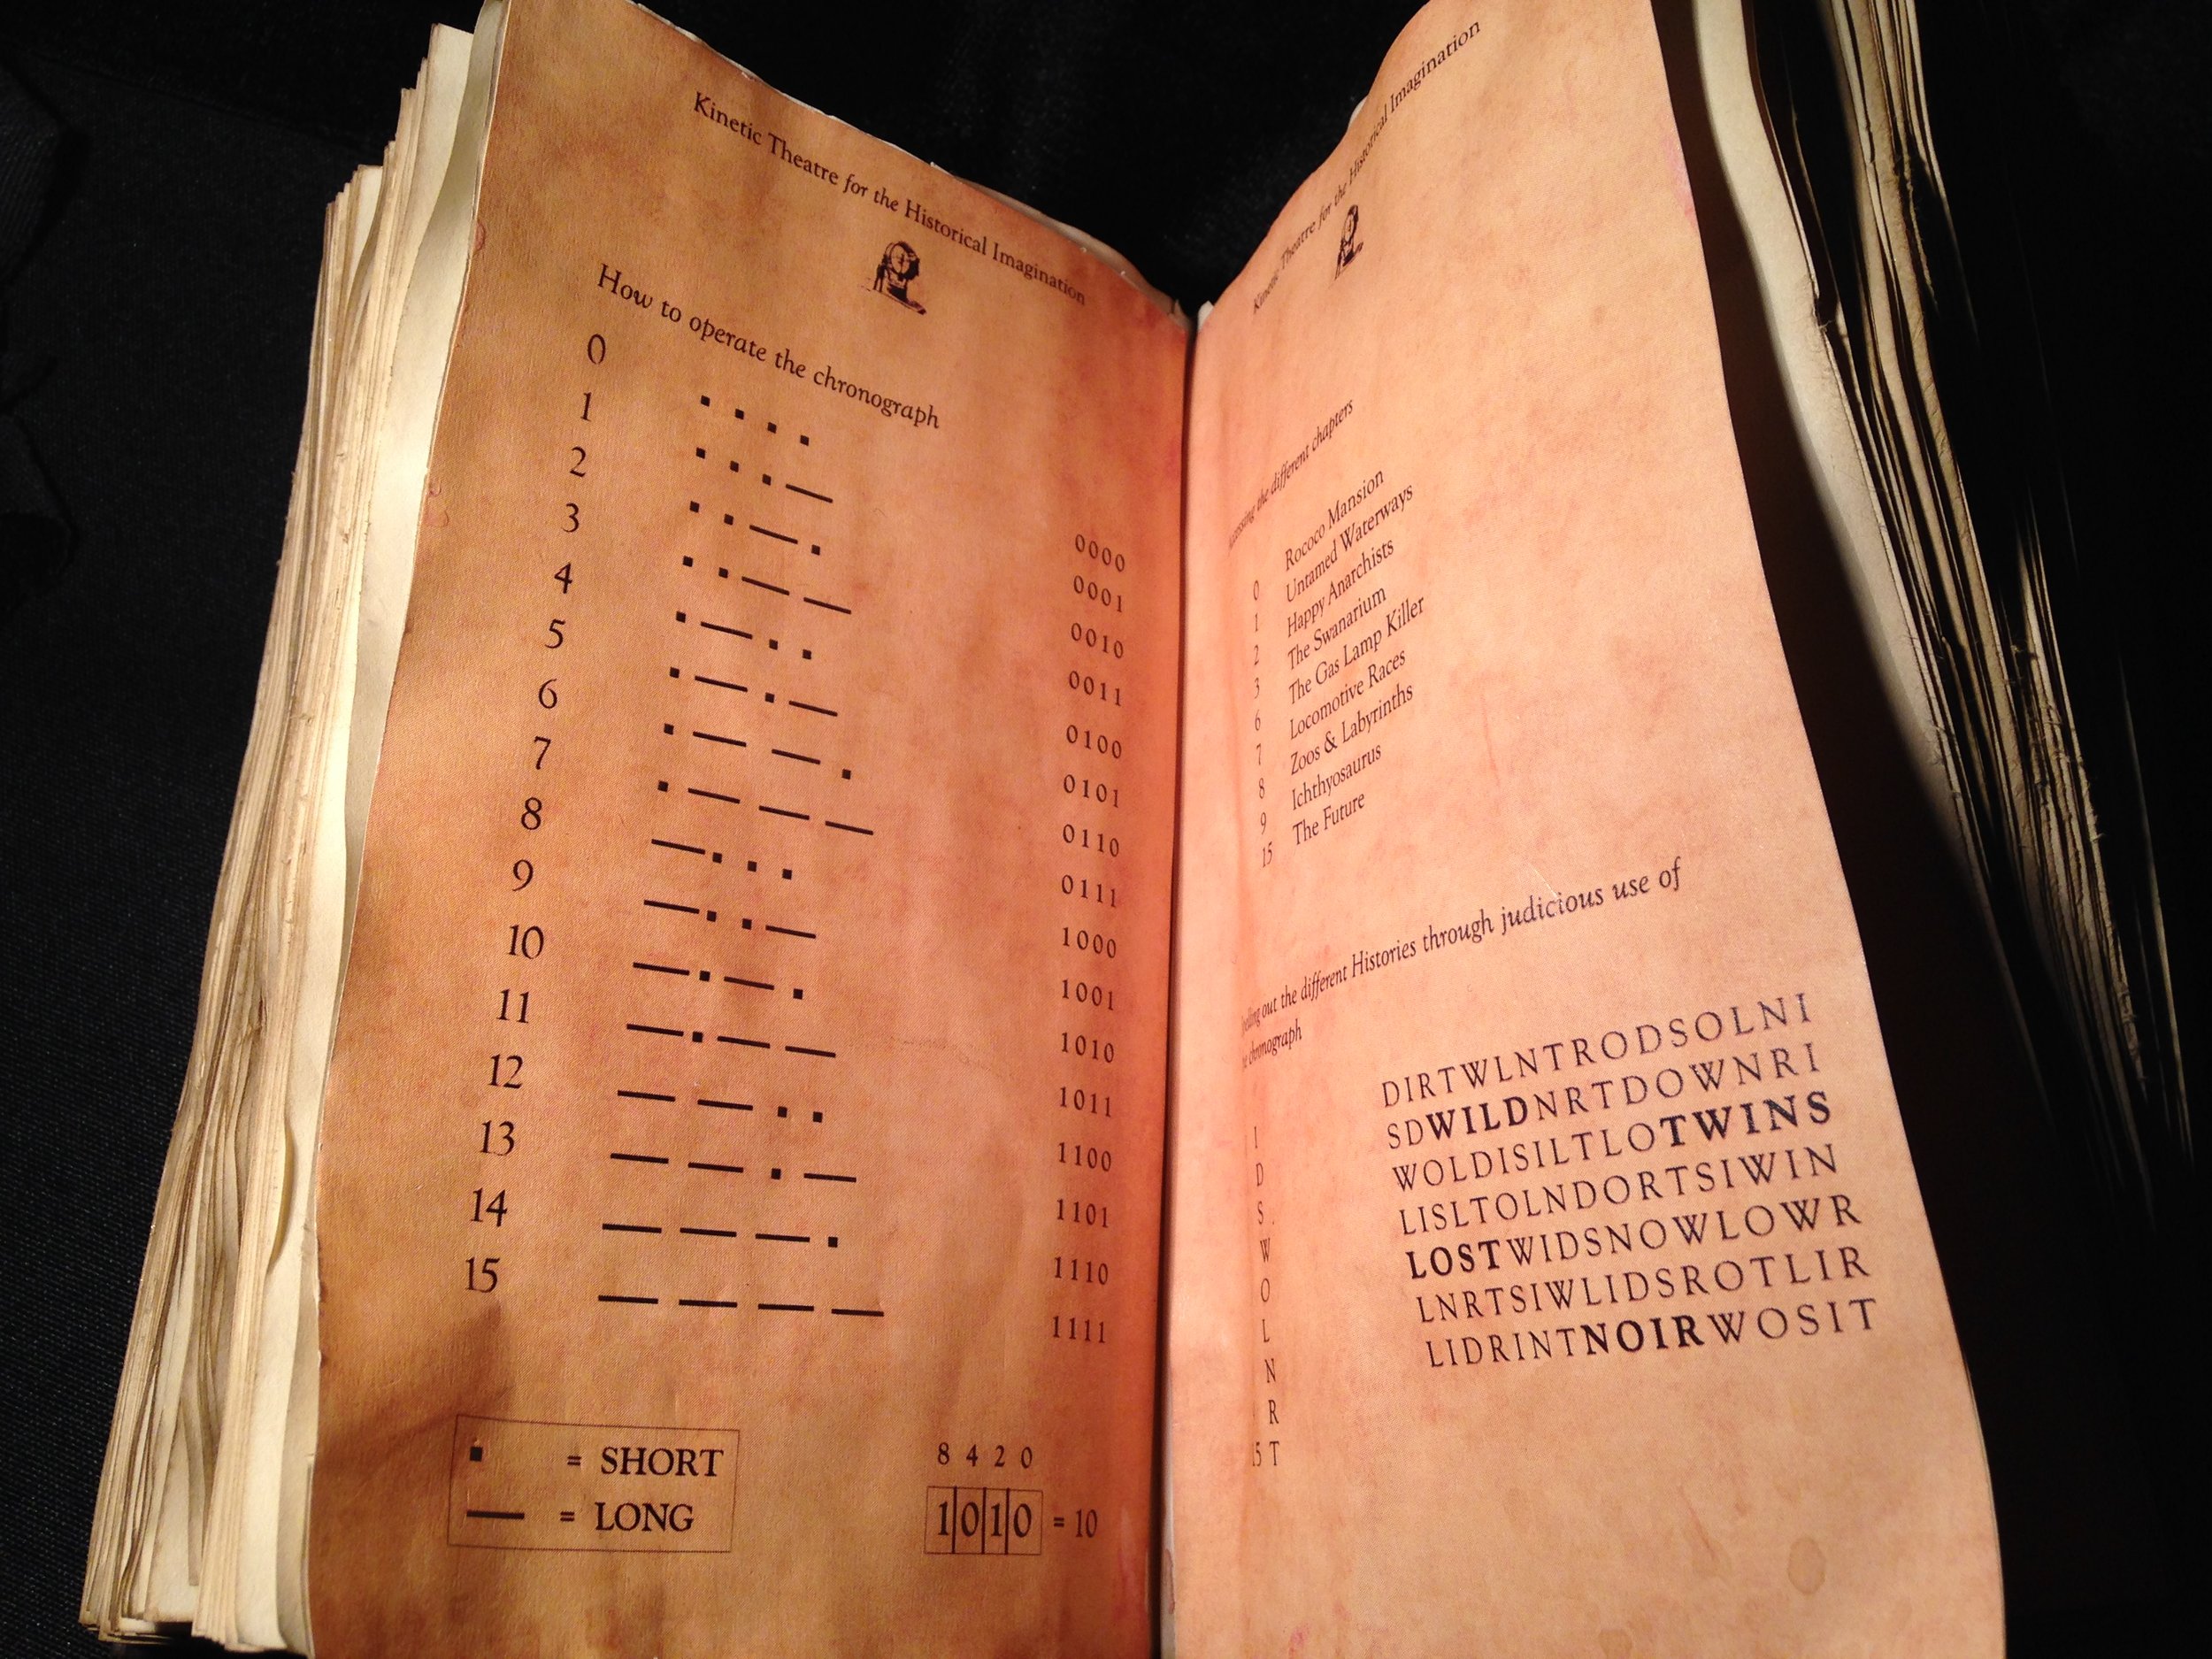 Kinetic Theatre for the Historical Imagination
How to operate the chronograph
0 . . . . 0000
1 . . . — 0001
2 . . — . 0010
3 . . — — 0011
4 . — . . 0100
5 . — . — 0101
6 . — — . 0110
7 . — — — 0111
8 — . . . 1000
9 — . . — 1001
10 — . — . 1010
11 — . — — 1011
12 — — . . 1100
13 — — . — 1101
14 — — — . 1110
15 — — — — 1111
. = SHORT
— = LONG
8 4 2 0
1 0 1 0 = 10
Kinetic Theatre for the Historical Imagination
the different chapters
0 Rococo Mansion
1 Untamed Waterways
2 Happy Anarchists
3 The Swanarium
6 The Gas Lamp Killer
7 Locomotive Races
8 Zoos & Labyrinths
9 Ichthyosaurus
15 The Future
out the different Histories through judicious use of
chronograph
I
D
S
W
O
L
N
R
15 T
DIRTWLNTRODSOLNI
SDWILDNRTDOWNRI
WOLDISILTLOTWINS
LISLTOLNDORTSIWIN
LOSTWIDSNOWLOWR
LNRTSIWLIDSROTLIR
LIDRINTNOIRWOSIT